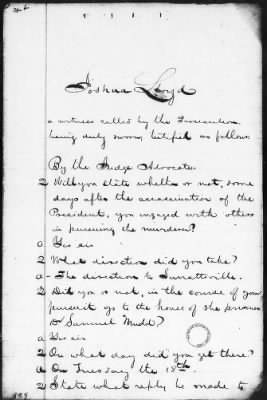 Joshua Lloyd
a witness called by the Prosecution
being duly sworn, testified as follows:
By the Judge Advocate.
Q Will you state whether or not, some
days after the assassination of the
President, you engaged with others
in pursuing the murderers?
a Yes sir
Q What direction did you take?
a - The direction to Surrattsville.
Q Did you or not, in the course of your
pursuit go to the house of the prisoner
Dr Samuel Mudd?
a Yes sir
Q On what day did you get there?
a On Tuesday the 18th.
Q State what reply he made to